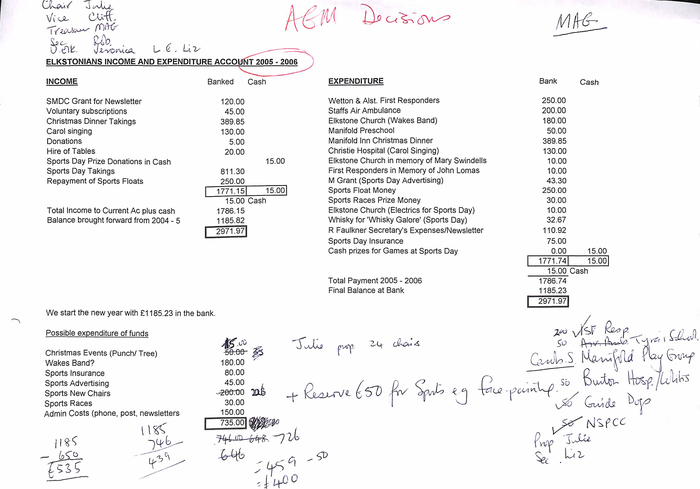 Chair Julie
Vice Cliff.
Treasurer MAG
Sec Rob.
U.Elk. Veronica L.E. Liz
AGM Decisions
MAG
ELKSTONIANS INCOME AND EXPENDITURE ACCOUNT 2005 - 2006
INCOME Banked Cash
SMDC Grant for Newsletter 120.00
Voluntary subscriptions 45.00
Christmas Dinner Takings 389.85
Carol singing 130.00
Donations 5.00
Hire of Tables 20.00
Sports Day Prize Donations in Cash 15.00
Sports Day Takings 811.30
Repayment of Sports Floats 250.00
1771.15 15.00
15.00 Cash
Total Income to Current Ac plus cash 1786.15
Balance brought forward from 2004 - 5 1185.82
2971.97
EXPENDITURE Bank Cash
Wetton & Alst. First Responders 250.00
Staffs Air Ambulance 200.00
Elkstone Church (Wakes Band) 180.00
Manifold Preschool 50.00
Manifold Inn Christmas Dinner 389.85
Christie Hospital (Carol Singing) 130.00
Elkstone Church in memory of Mary Swindells 10.00
First Responders in Memory of John Lomas 10.00
M Grant (Sports Day Advertising) 43.30
Sports Float Money 250.00
Sports Races Prize Money 30.00
Elkstone Church (Electrics for Sports Day) 10.00
Whisky for 'Whisky Galore' (Sports Day) 32.67
R Faulkner Secretary's Expenses/Newsletter 110.92
Sports Day Insurance 75.00
Cash prizes for Games at Sports Day 0.00 15.00
1771.74 15.00
15.00 Cash
Total Payment 2005 - 2006 1786.74
Final Balance at Bank 1185.23
2971.97
We start the new year with £1185.23 in the bank.
Possible expenditure of funds
15.00
Christmas Events (Punch/ Tree) 50.00 35
Wakes Band? 180.00
Sports Insurance 80.00
Sports Advertising 45.00
Sports New Chairs 200.00 226
Sports Races 30.00
Admin Costs (phone, post, newsletters 150.00
735.00
648 726
646
1185
- 650
£535
1185
746
439
= 459 - 50
= £400
Julie prop 24 chairs
+ Reserve £50 for Sports eg face-painting
200 1ST Resp
50 School
Manifold Play Group
50 Buxton Hosp.
50 Guide Dogs
50 NSPCC
Prop Julie
Sec. Liz